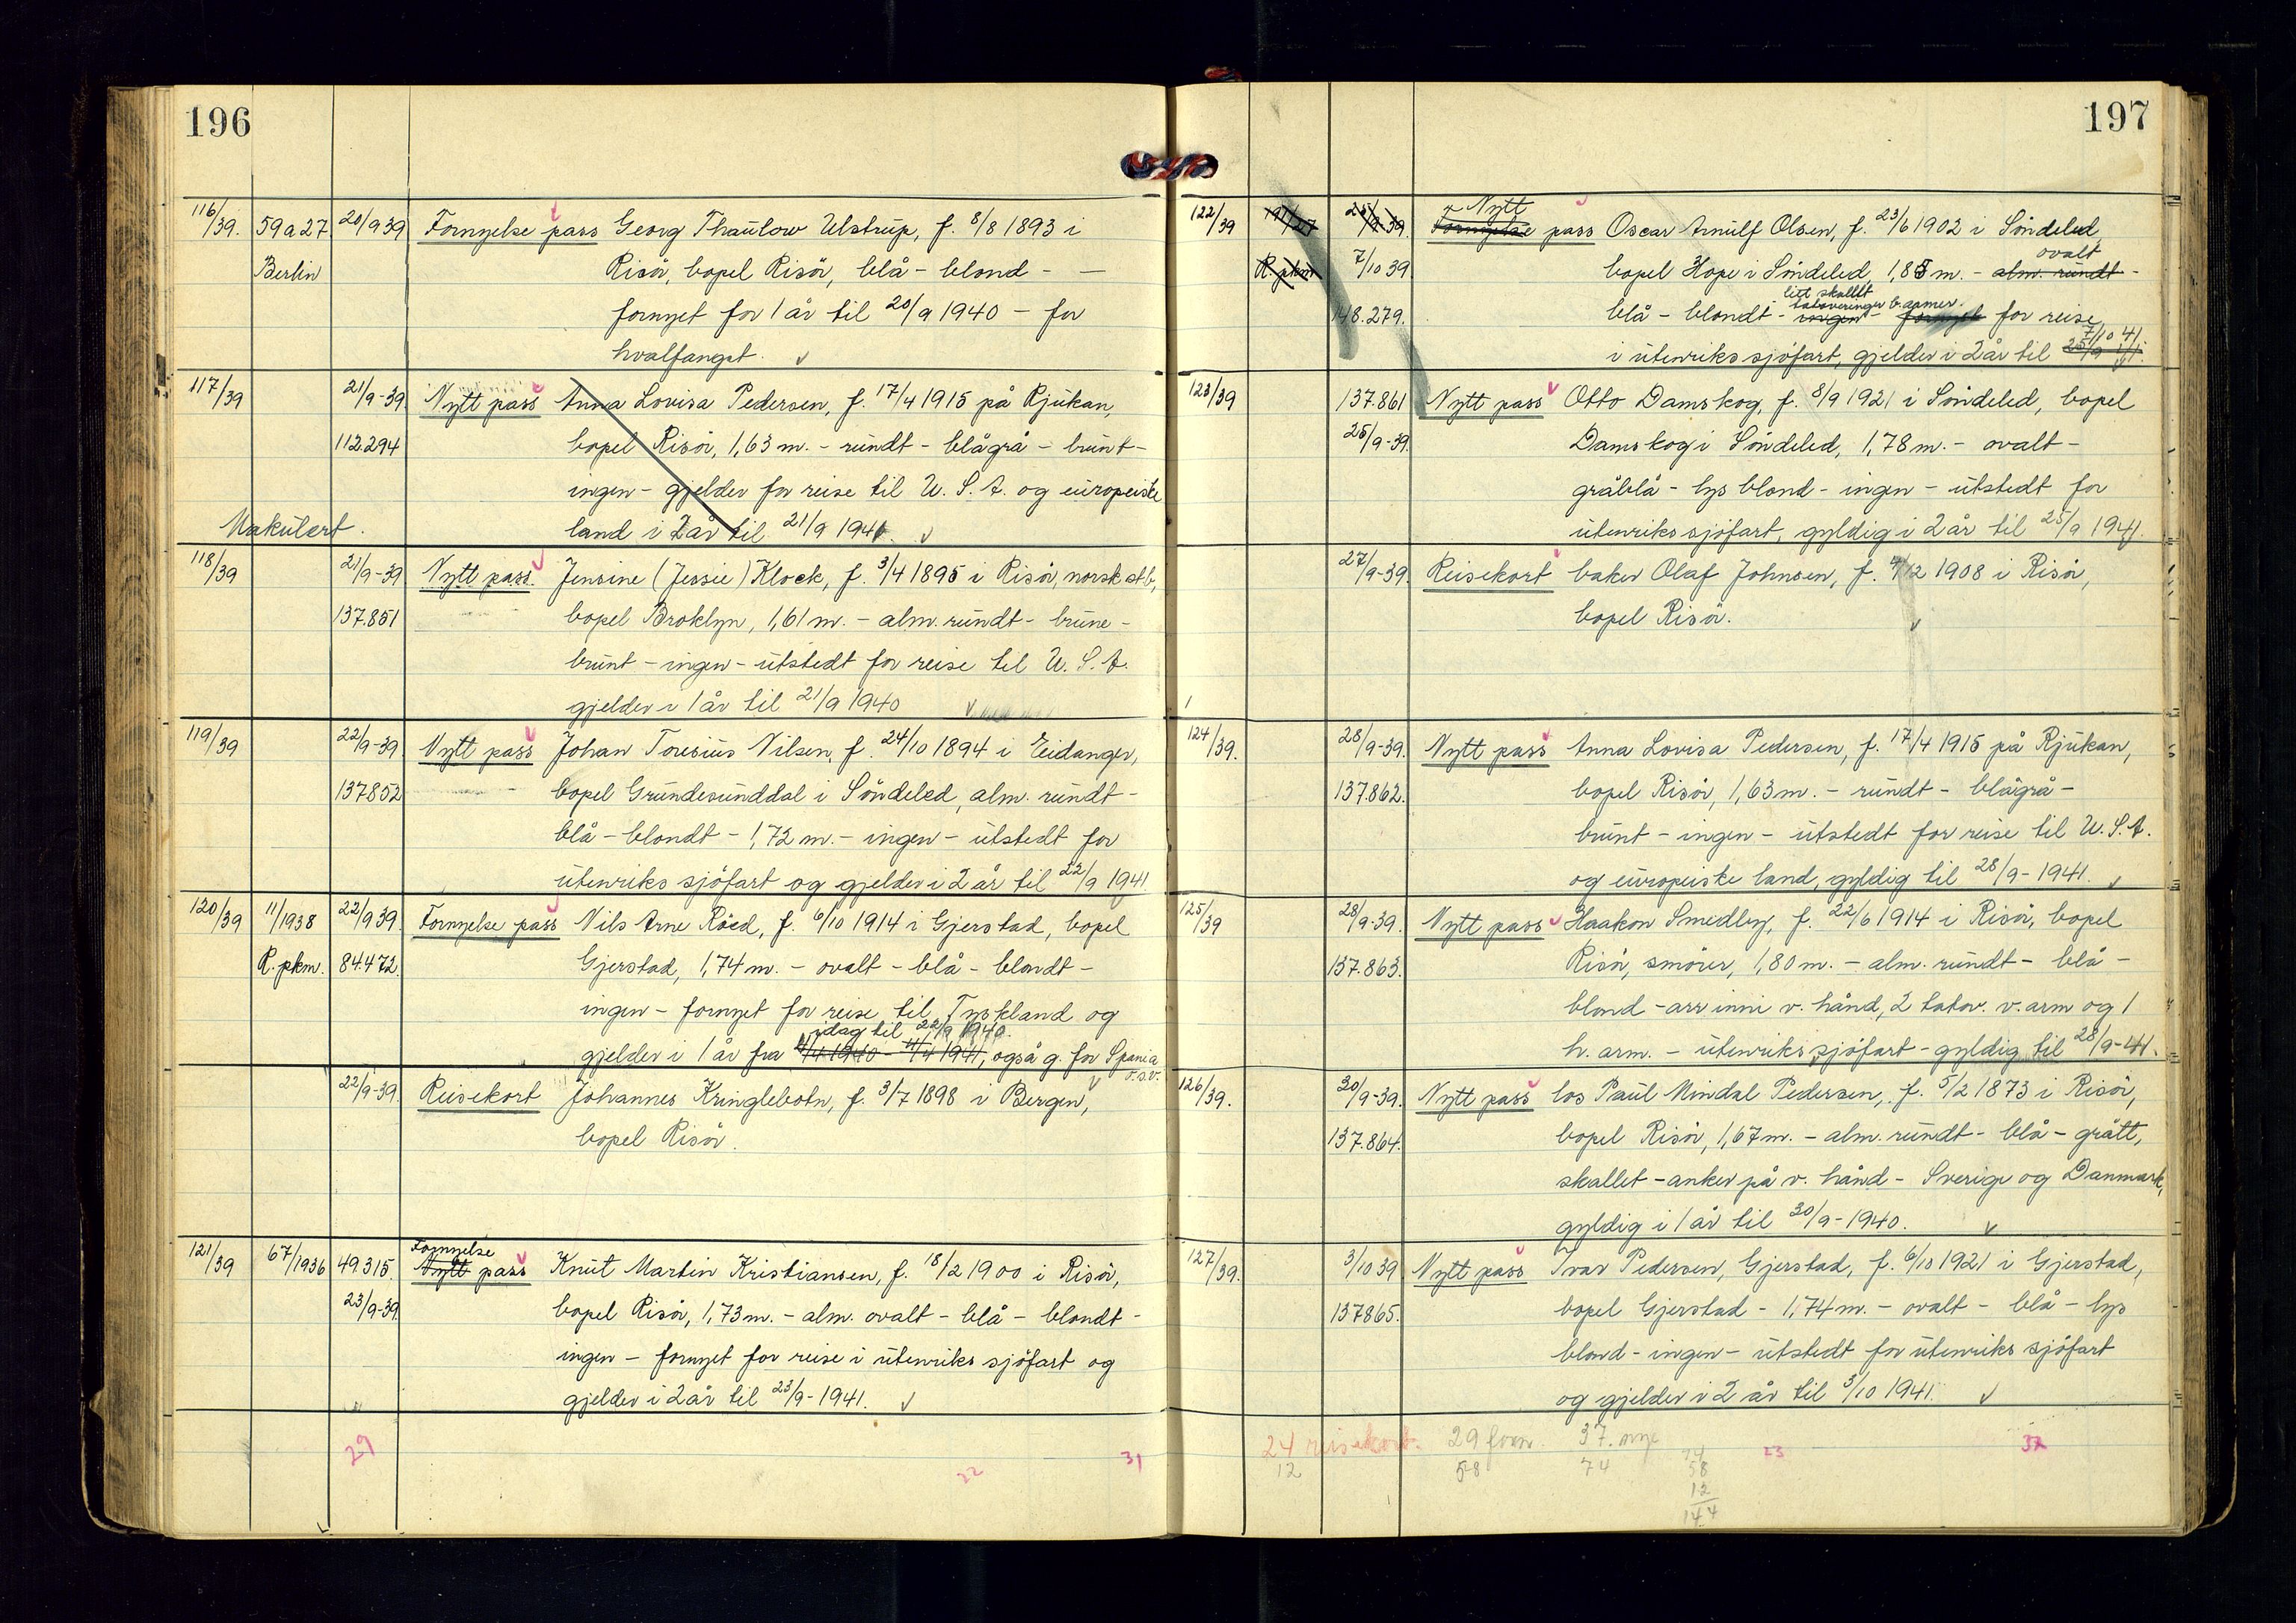 196
116/39. 59a27 20/9 39 Fornyelse pass Georg Thaulow Ulstrup, f. 8/8 1893 i
Berlin Risör, bopel Risör, blå - blond - —
fornyet for 1 år til 20/9 1940 - for
hvalfangst.
117/39 21/9-39 Nytt pass Anna Lovisa Pedersen, f. 17/4 1915 på Rjukan,
112.294 bopel Risör, 1,63 m. - rundt - blågrå - brunt -
ingen - gjelder for reise til U.S.A. og europeiske
Makulert. land i 2 år til 21/9 1941.
118/39 21/9-39 Nytt pass. Jensine (Jessie) Klock, f. 3/4 1895 i Risör, norsk stb,
137.851 bopel Broklyn, 1,61 m. - alm. rundt - brune -
brunt - ingen - utstedt for reise til U.S.A.
gjelder i 1 år til 21/9 1940
119/39 22/9-39 Nytt pass Johan Toresius Nilsen, f. 24/10 1894 i Eidanger,
137852 bopel Grundesunddal i Söndeled, alm. rundt -
blå - blondt - 1,72 m. - ingen - utstedt for
utenriks sjöfart og gjelder i 2 år til 22/9 1941
120/39 11/1938 22/9 39. Fornyelse pass Nils Arne Röed, f. 6/10 1914 i Gjerstad, bopel
R. pkm. 84.472. Gjerstad, 1,74 m. - ovalt - blå - blondt -
ingen - fornyet for reise til Tyskland og
idag til 22/9 1940.
gjelder i 1 år fra 4/4 1940 - 4/4 1941, også g. for Spania
o.s.v.
22/9-39. Reisekort Johannes Kringlebotn, f. 3/7 1898 i Bergen,
bopel Risör.
Fornyelse
121/39 67/1936 49.315. Nytt pass Knut Martin Kristiansen, f. 18/2 1900 i Risör,
23/9-39. bopel Risör, 1,73 m. - alm. ovalt - blå - blondt -
ingen - fornyet for reise i utenriks sjöfart og
gjelder i 2 år til 23/9-1941.
29 22 31
197
Nytt
122/39 191/37 25/9-39. Fornyelse pass Oscar Arnulf Olsen, f. 23/6 1902 i Söndeled
ovalt
R. pkm 7/10 39 bopel Hope i Söndeled, 1,85 m. - alm. rundt -
litt skallet
tatoveringer b. armer.
148.279. blå - blondt - ingen - fornyet for reise
7/10 41.
i utenriks sjöfart, gjelder i 2 år til 25/9 41.
123/39 137.861 Nytt pass Otto Damskog, f. 8/9 1921 i Söndeled, bopel
25/9-39. Damskog i Söndeled, 1,78 m. - ovalt -
gråblå - lys blond - ingen - utstedt for
utenriks sjöfart, gyldig i 2 år til 25/9 1941.
27/9-39. Reisekort baker Olaf Johnsen, f. 4/12 1908 i Risör,
bopel Risör.
124/39. 28/9-39. Nytt pass Anna Lovisa Pedersen, f. 17/4 1915 på Rjukan,
137.862. bopel Risör, 1,63 m. - rundt - blågrå -
brunt - ingen - utstedt for reise til U.S.A.
og europeiske land, gyldig til 28/9-1941.
125/39 28/9-39. Nytt pass Haakon Smedley, f. 22/6 1914 i Risör, bopel
137.863. Risör, smörer, 1,80 m. - alm. rundt - blå -
blond - arr inni v. hånd, 2 tatov. v. arm og 1
h. arm. - utenriks sjöfart - gyldig til 28/9-41.
126/39. 30/9-39. Nytt pass los Paul Mindal Pedersen, f. 5/2 1873 i Risör,
137.864. bopel Risör, 1,67 m. - alm. rundt - blå - grått,
skallet - anker på v. hånd - Sverige og Danmark,
gyldig i 1 år til 30/9-1940.
127/39. 3/10 39 Nytt pass Ivar Pedersen, Gjerstad, f. 6/10 1921 i Gjerstad,
137865. bopel Gjerstad - 1,74 m. - ovalt - blå - lys
blond - ingen - utstedt for utenriks sjöfart
og gjelder i 2 år til 3/10 1941.
24 reisekort. 29 forn. 37. nye
12 58 74 74 23 32
58
12
144